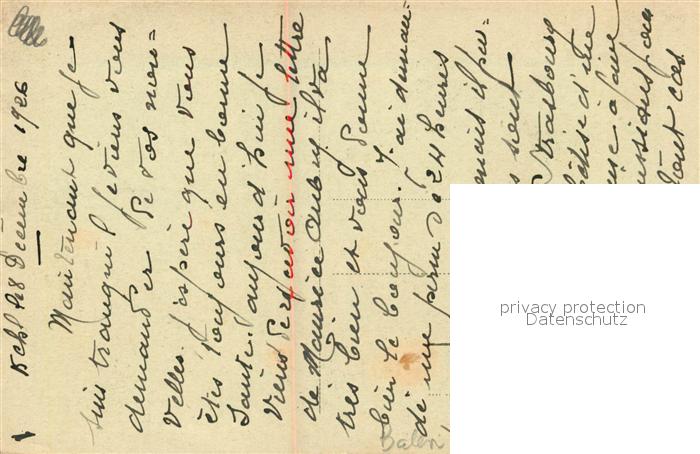 Kehl le 8 Décembre 1926
Maintenant que je
suis tranquil je viens vous
demander de vos nou-
velles j'espère que vous
êtes toujours en bonne
santé. aujourd'hui je
viens de recevoir une lettre
de Maurice Aubry il va
très bien et vous donne
bien le bonjour. J'ai deman-
dé une perm de 24 heures
mais il
sont
Strasbourg
d'être
à faire
tout cas
privacy protection
Datenschutz
Balen